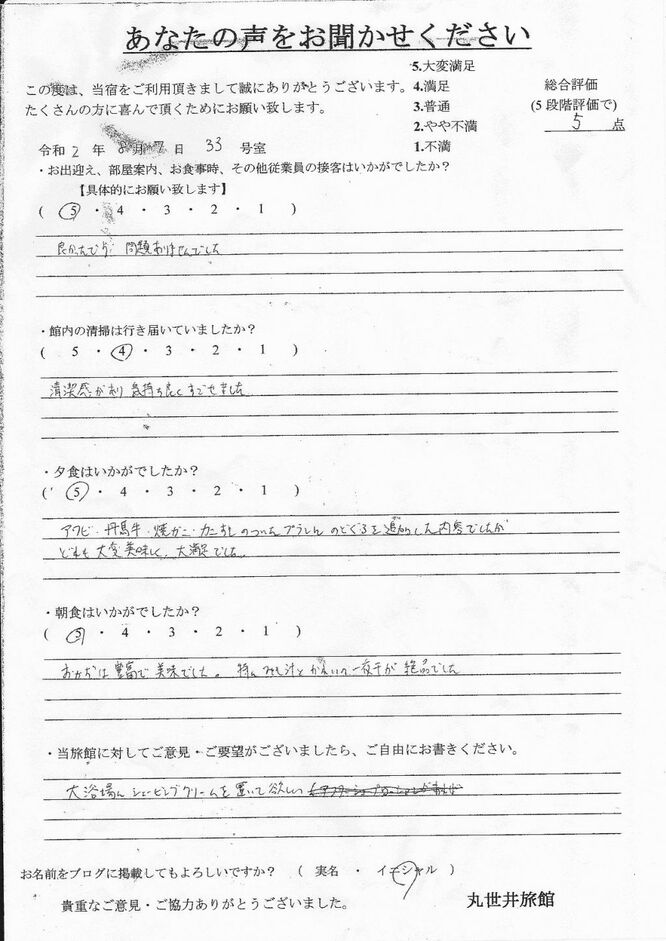 あなたの声をお聞かせください
この度は、当宿をご利用頂きまして誠にありがとうございます。
たくさんの方に喜んで頂くためにお願い致します。
5.大変満足
4.満足
3.普通
2.やや不満
1.不満
総合評価
(5段階評価で)
5 点
令和 2 年 8月 日 33 号室
・お出迎え、部屋案内、お食事時、その他従業員の接客はいかがでしたか?
【具体的にお願い致します】
( 5 ・ 4 ・ 3 ・ 2 ・ 1 )
良かったです。問題ありませんでした
・館内の清掃は行き届いていましたか?
( 5 ・ 4 ・ 3 ・ 2 ・ 1 )
清潔感があり 気持ち良くすごせました
・夕食はいかがでしたか?
( 5 ・ 4 ・ 3 ・ 2 ・ 1 )
アワビ・丹馬牛・焼がに・カニすしのついたプランに のどぐろを追加した内容でしたが
どれも大変美味しく、大満足でした
・朝食はいかがでしたか?
( 5 ・ 4 ・ 3 ・ 2 ・ 1 )
おかずは豊富で美味でした。特にみそ汁とかれいの一夜干が絶品でした
・当旅館に対してご意見・ご要望がございましたら、ご自由にお書きください。
大浴場にシェービングクリームを置いて欲しい
お名前をブログに掲載してもよろしいですか? ( 実名 ・ イニシャル )
貴重なご意見・ご協力ありがとうございました。
丸世井旅館